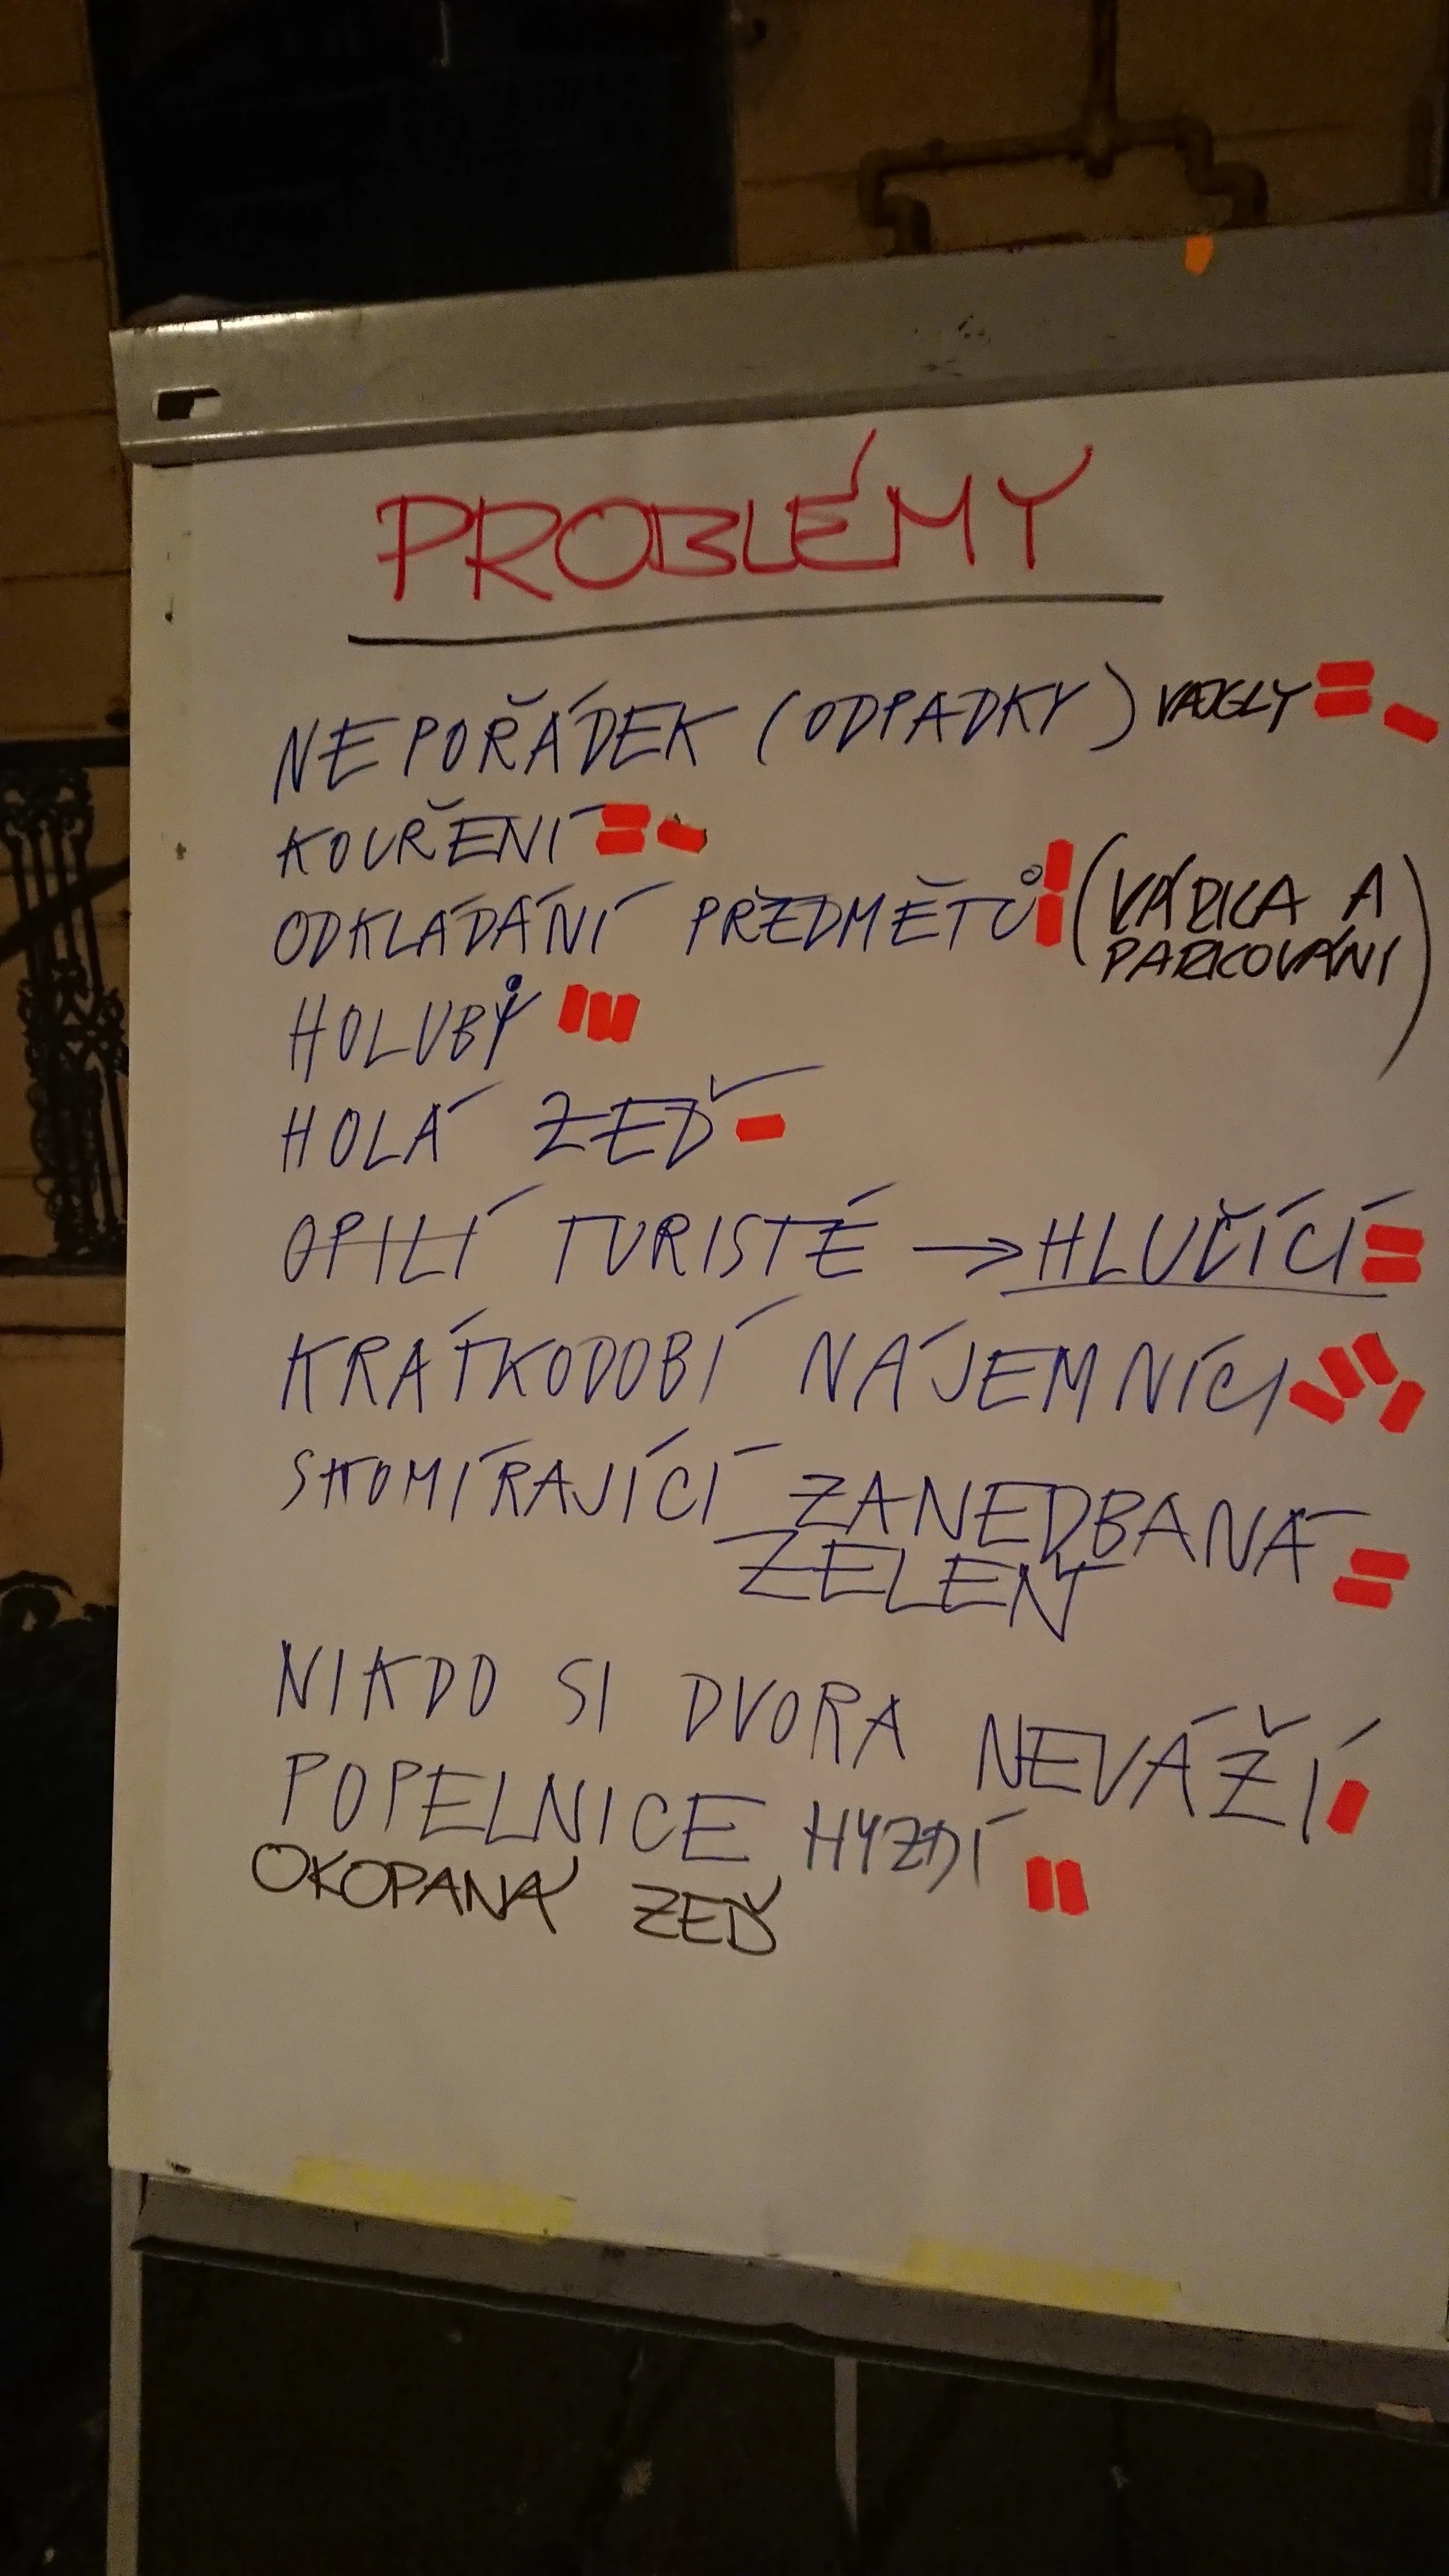 PROBLÉMY
NEPOŘÁDEK (ODPADKY) VAJGLY
KOUŘENÍ
ODKLÁDÁNÍ PŘEDMĚTŮ (VÁRKA A
PARKOVÁNÍ)
HOLUBY
HOLÁ ZEĎ
OPILÍ TURISTÉ → HLUČÍCÍ
KRÁTKODOBÍ NÁJEMNÍCI
SKOMÍRAJÍCÍ ZANEDBANÁ
ZELEŇ
NIKDO SI DVORA NEVÁŽÍ
POPELNICE HYZDÍ
OKOPANÁ ZEĎ